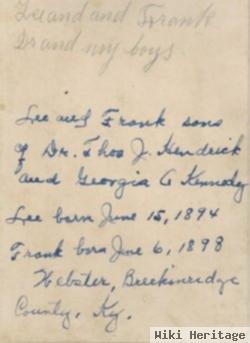 Lee and Frank
Grand my boys
Lee and Frank sons
of Dr. Thos J. Kendrick
and Georgia A Kennedy
Lee born June 15, 1894
Frank born June 6, 1898
Webster, Breckinridge
County, Ky.
Wiki Heritage